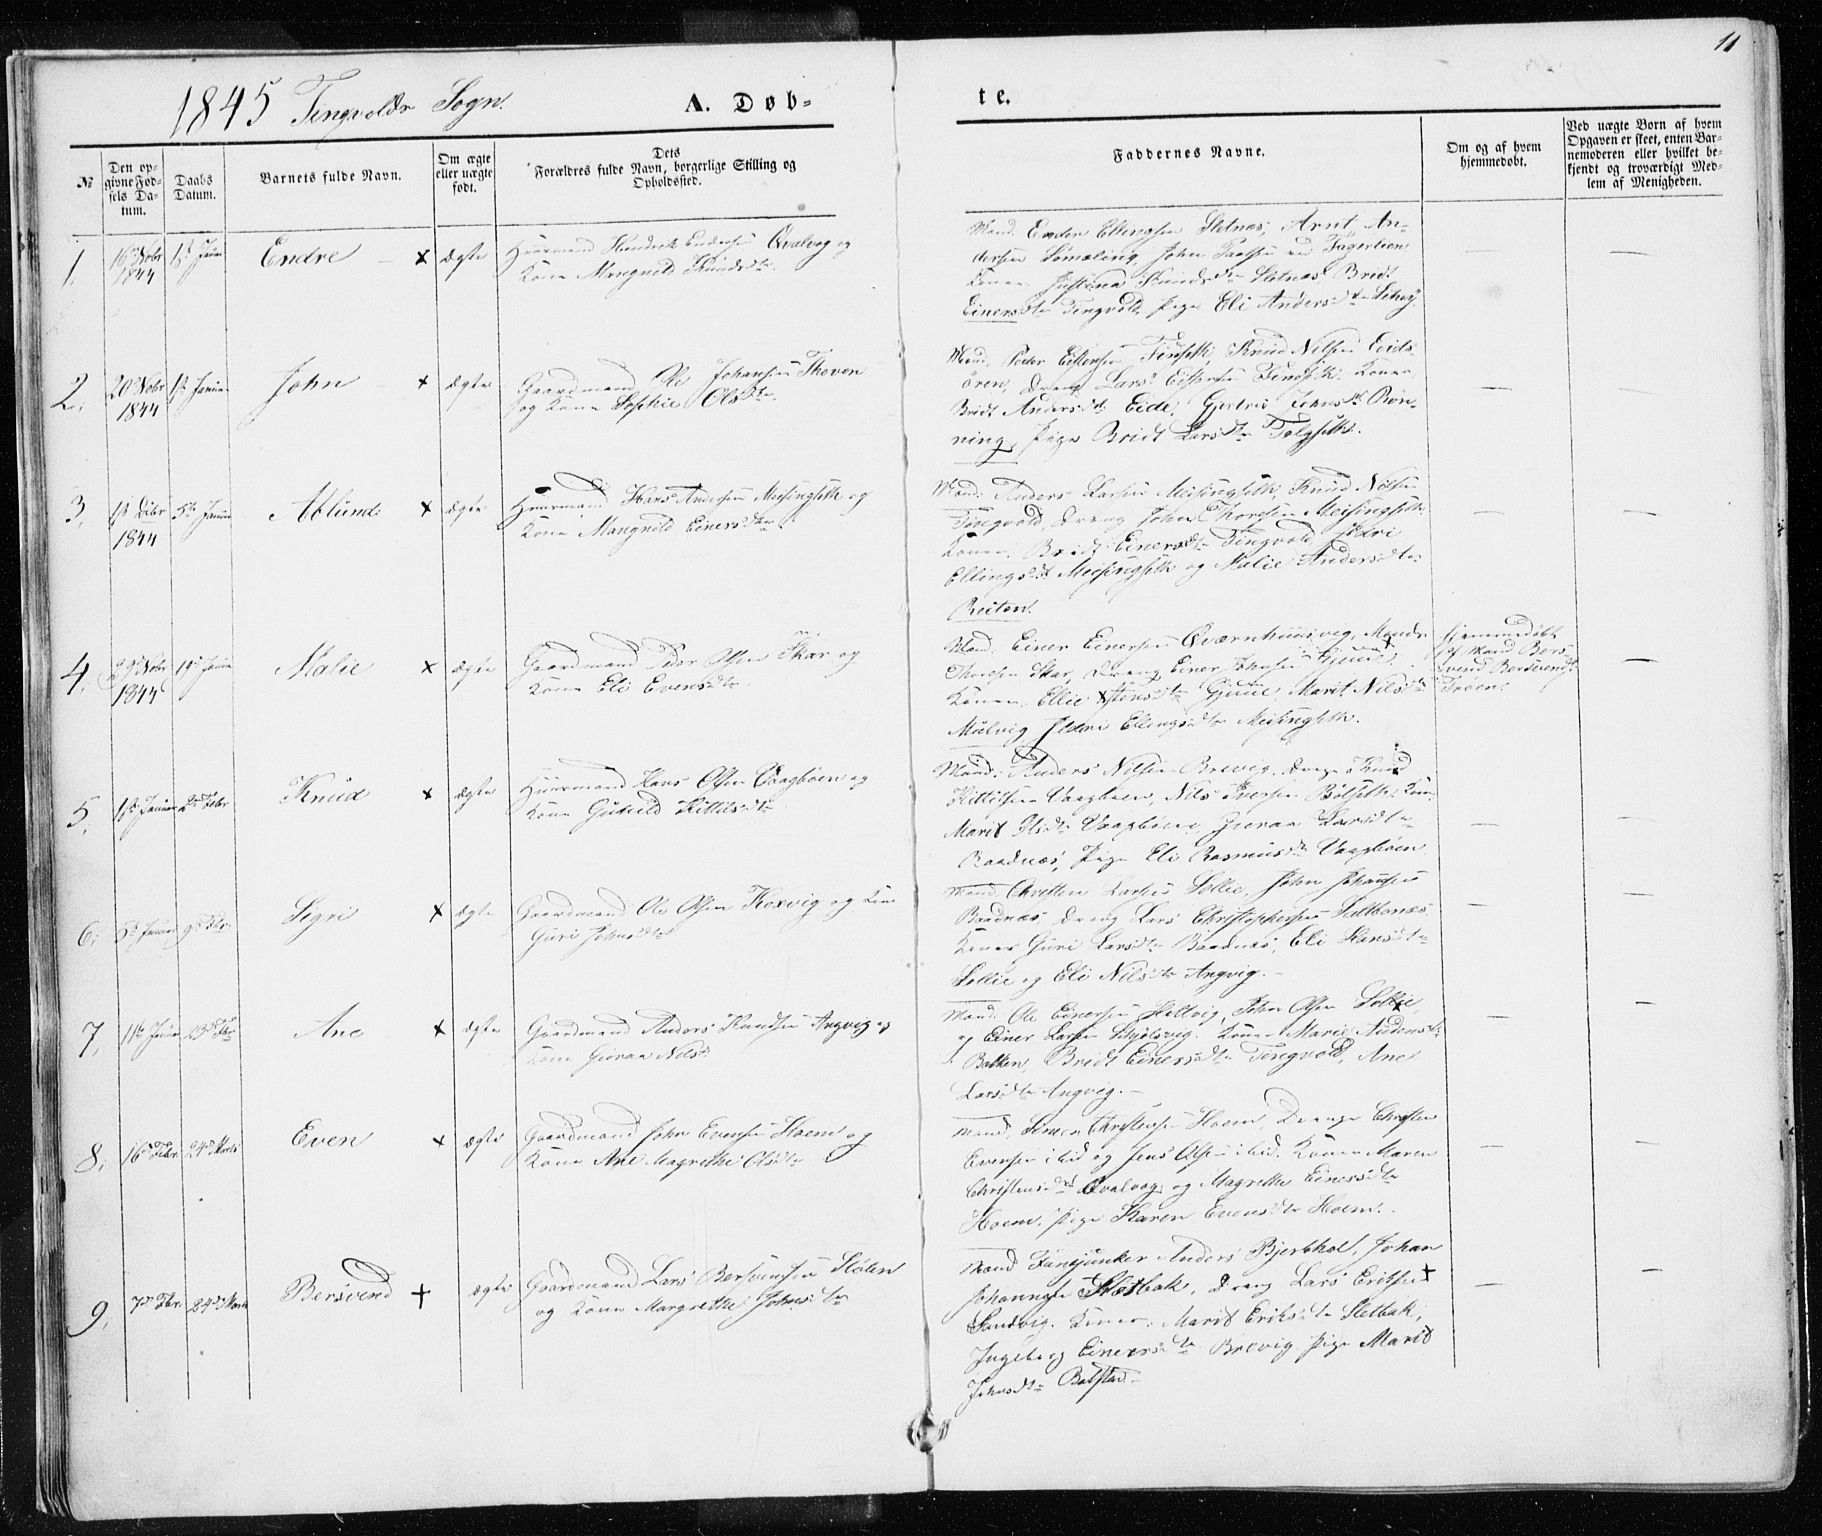 11
1845 Tingvolds Sogn. A. Døb- te.
№
Den op-
givne Fød-
sels Da-
tum.
Daabs
Datum.
Barnets fulde Navn.
Om ægte
eller uægte
født.
Dets
Forældres fulde Navn, borgerlige Stilling og
Opholdssted.
Faddernes Navne.
Om og af hvem
hjemmedøbt.
Ved uægte Børn af hvem
Opgaven er skeet, enten Bar-
nemoderen eller hvilket be-
kjendt og troværdigt Med-
lem af Menigheden.
1. 16de Novbr 1ste Janr Endre – x ægte Huusmand Hendrik Endresen Qvalvog og
1844 Kone Mangnild Knudsdtr
Mænd: Endre Ellingsen Sletnæs, Arnt An-
dersen, John
Koner Justina Knudsdtr Sletnæs, Brit
Einersdtr Tingvold, Pige Eli Andersdtr
— —
2. 20de Novbr 1ste Januar John – x ægte Gaardmand Ole Johansen Thoven
1844 og Kone Sophie Olsdtr
Mænd: Peder Estensen Finseth, Knud Nilsen Eids-
ören, Dreng Lars Estensen Finseth. Koner
Bridt Andersdtr Eide, Gjertru Johnsdtr Rön-
ning, Pige Bridt Larsdtr
— —
3. 1ste Debr 5te Januar Ablund x ægte Huusmand Hans Andersen Meisingseth og
1844 Kone Mangnild Einersdtr
Mænd: Anders Larsen Meisingseth, Knud Nilsen
Tingvold, Dreng John Thoresen Meisingseth
Koner. Bridt Einersdtr Tingvold, Ildri
Ellingsdtr Meisingseth og Malie Andersdtr
Reiten.
— —
4. 29de Novbr 19de Janua Malie x ægte Gaardmand Peder Olsen Skar og
1844 Kone Eli Evensdtr
Mænd: Einer Einersen Qværnhuusvig, Mænds
Thoresen Skar, Dreng Einer Johnsen Gjuul
Koner. Ellie Gjuul Marit Nilsdtr
Mulvig Ildri Ellingsdtr Meisingseth.
hjemmedøbt
af Mand Ber-
svend Bersvends:
Trøen.
—
5. 1ste Januar 2den Febr Knud x ægte Huusmand Hans Olsen Vaagbøen og
Kone Gunild Kittilsdtr
Mænd: Anders Nilsen Brevig, Drenge Knud
Kittilsen Vaagbøen, Nils Iversen Bölseth. Kon:
Marit Olsdtr Vaagbøen, Guroa Larsdtr
Baadnæs, Pige Eli Rasmusdtr Vaagbøen
— —
6. 5te Januar 9de Febr. Sigri x ægte Gaardmand Ole Olsen Koxvig og Kone
Guri Johnsdtr
Mænd: Christen Larsen Sollie, John Johansen
Baadnæs, Dreng Lars Christophersen Saltbonæs
Koner Guri Larsdtr Baadnæs, Eli Hansdtr
Sollie og Eli Nilsdtr Angvig. –
— —
7. 11te Januar 23de Febr Ane x ægte Gaardmand Anders Knudsen Angvig og
Kone Guroa Nilsdtr
Mænd: Ole Einersen Holtvig, John Olsen Sollie,
og Einer Larsen. Koner Marie Andersdtr
Bakken, Bridt Einersdtr Tingvold, Ane
Larsdtr Angvig. –
— —
8. 16de Febr. 24de Marts Even x ægte Gaardmand John Evensen Hoem og
Kone Ane Magrethe Olsdtr
Mænd, Simen Christensen Hoem, Drenge Christen
Evensen ibid og Jens Olsen ibid. Koner Maren
Christensdtr Qvalvog og Magrethe Einersdtr
Hoem, Pige Karen Evensdtr Hoem.
— —
9. 7de Fbr. 24de Marts Bersvend + ægte Gaardmand Lars Bersvensen Stölen
og Kone Margrethe Johnsdtr
Mænd Fanejunker Anders Bjerkhol, Johan
Johannesen Sletbak, Dreng Lars Eriksen +
Sandvig. Koner: Marit Eriksdtr Sletbak,
Ingeborg Einersdtr Brevig Pige Marit
Johnsdtr Bolstad. –
— —